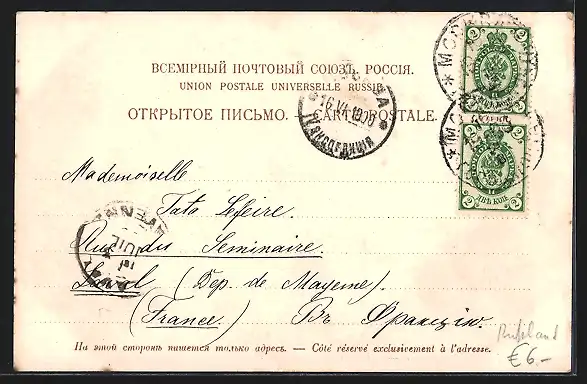 ВСЕМІРНЫЙ ПОЧТОВЫЙ СОЮЗЪ. РОССІЯ.
UNION POSTALE UNIVERSELLE RUSSIE
ОТКРЫТОЕ ПИСЬМО. — CARTE POSTALE.
2 2
ДВѢ КОП.
2 2
2 2
ДВѢ КОП.
2 2
МОСКВА
16 VI
ЭКСПЕДИЦІЯ
Mademoiselle
Tata Lefeire
Rue du Seminaire.
Laval (Dep. de Mayenne.)
(France.) Въ Францію.
MAYENNE
JUIL
На этой сторонѣ пишется только адресъ. — Côté réservé exclusivement à l'adresse.
Rußland
€ 6.-